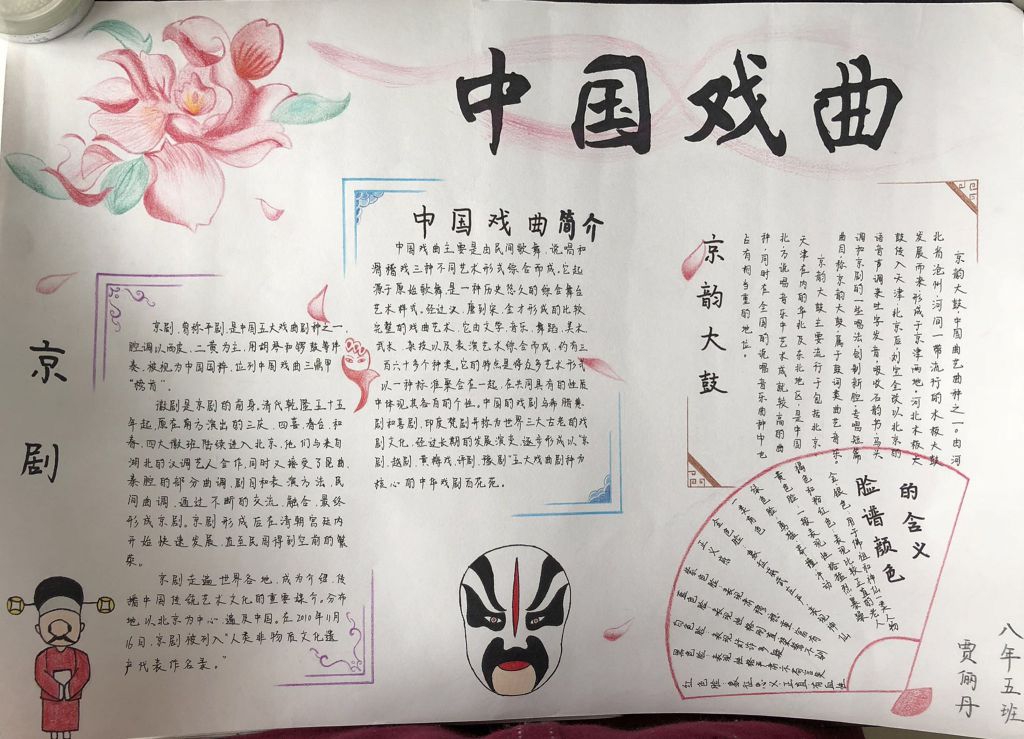 中国戏曲
中国戏曲简介
中国戏曲主要是由民间歌舞、说唱和
滑稽戏三种不同艺术形式综合而成。它起
源于原始歌舞,是一种历史悠久的综合舞台
艺术样式。经过汉、唐到宋、金才形成比较
完整的戏曲艺术,它由文学、音乐、舞蹈、美术、
武术、杂技以及表演艺术综合而成,约有三
百六十多个种类。它的特点是将众多艺术形式
以一种标准聚合在一起,在共同具有的性质
中体现其各自的个性。中国的戏剧与希腊悲
剧和喜剧、印度梵剧并称为世界三大古老的戏
剧文化,经过长期的发展演变,逐步形成以“京
剧、越剧、黄梅戏、评剧、豫剧”五大戏曲剧种为
核心的中华戏剧百花苑。
京剧
京剧,曾称平剧,是中国五大戏曲剧种之一,
腔调以西皮、二黄为主,用胡琴和锣鼓等伴
奏,被视为中国国粹,位列中国戏曲三鼎甲
“榜首”。
徽剧是京剧的前身。清代乾隆五十五
年起,原在南方演出的三庆、四喜、春台、和
春,四大徽班陆续进入北京,他们与来自
湖北的汉调艺人合作,同时又接受了昆曲、
秦腔的部分曲调、剧目和表演方法,民
间曲调,通过不断的交流、融合,最终
形成京剧。京剧形成后在清朝宫廷内
开始快速发展,直至民国得到空前的繁
荣。
京剧走遍世界各地,成为介绍、传
播中国传统艺术文化的重要媒介。分布
地以北京为中心,遍及中国。在2010年11月
16日,京剧被列入“人类非物质文化遗
产代表作名录。”
京韵大鼓
京韵大鼓中国曲艺曲种之一。由河
北省沧州河间一带流行的木板大鼓
发展而来,形成于京津两地。河北木板大
鼓传入天津、北京后,刘宝全改以北京的
语音声调来吐字发音,吸收石韵书、马头
调和京剧的一些唱法,创制新腔,专唱短篇
曲目,称京韵大鼓,属于鼓词类曲艺音乐。
京韵大鼓主要流行于包括北京、
天津在内的华北及东北地区,是中国
北方说唱音乐中艺术成就较高的曲
种,同时在全国的说唱音乐曲种中也
占有相当重的地位。
脸谱颜色
的含义
红色脸:象征忠义、正直、有血性
八年五班
贾俩丹